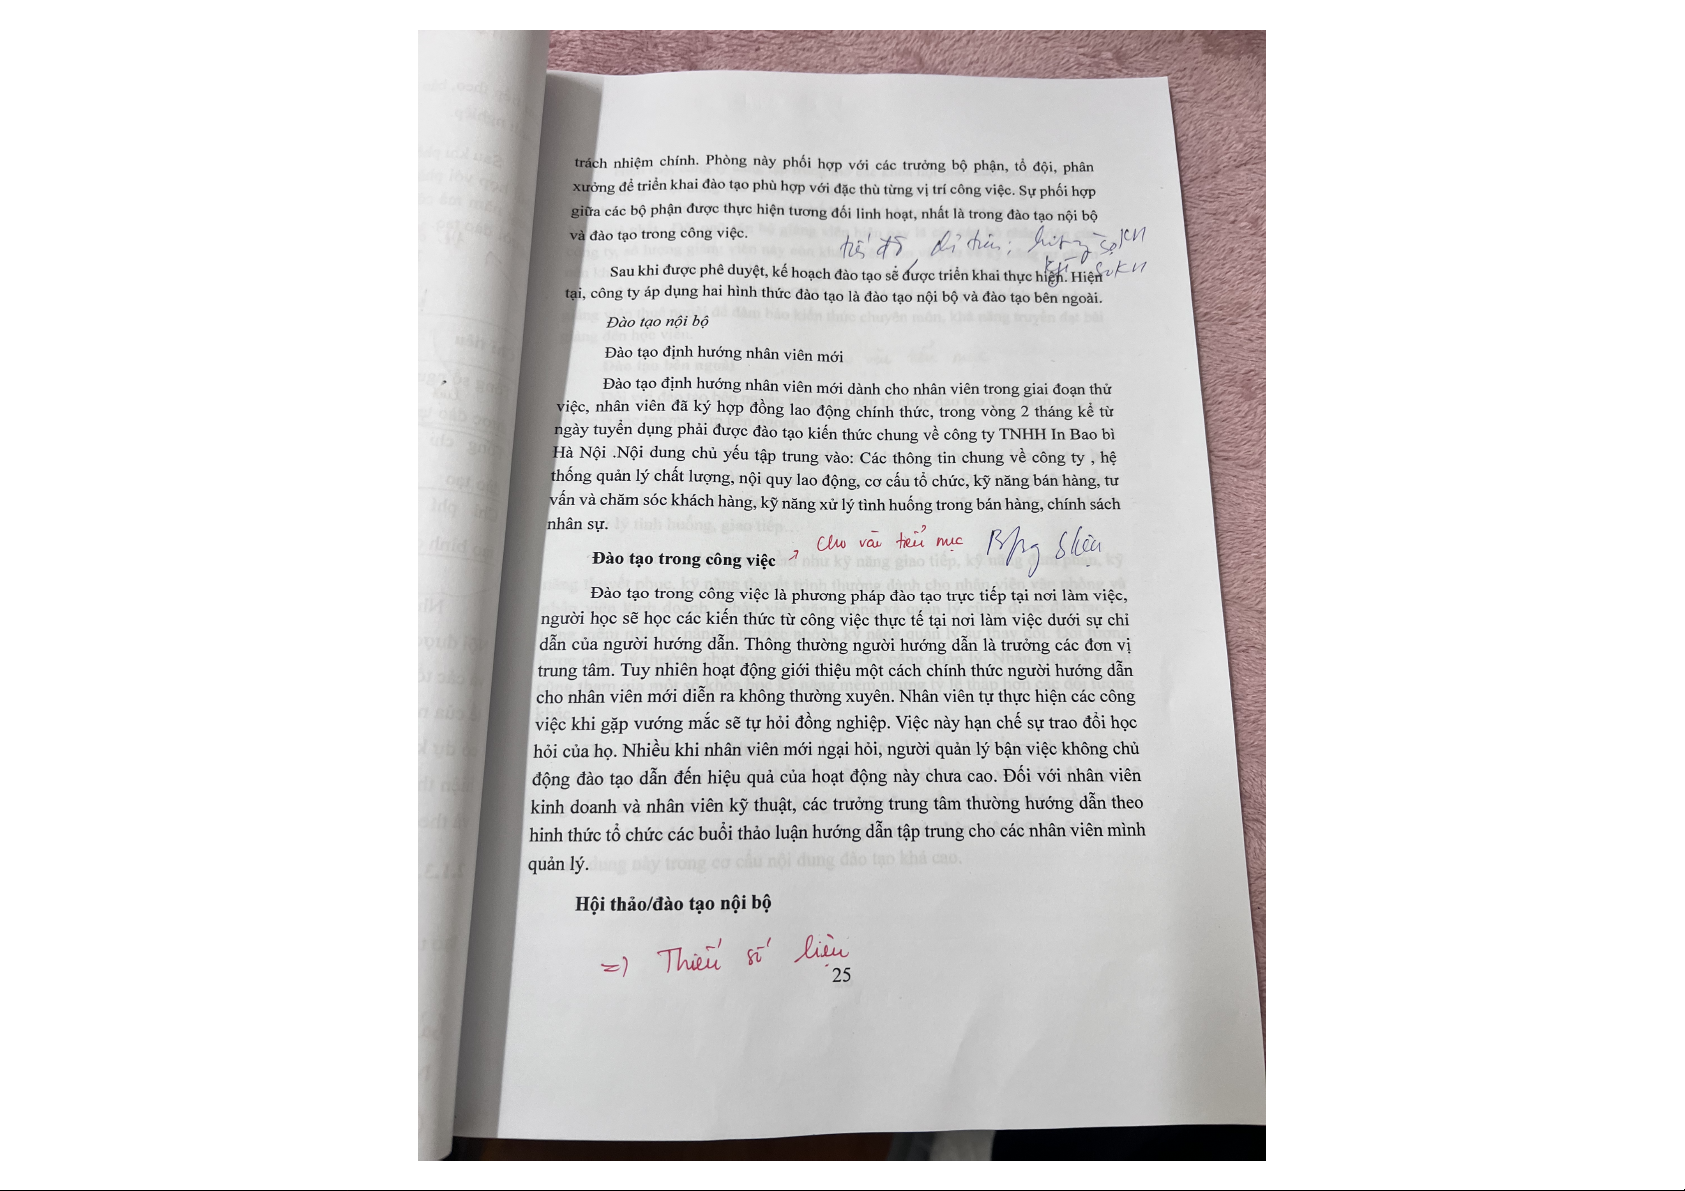 trách nhiệm chính. Phòng này phối hợp với các trưởng bộ phận, tổ đội, phân
xưởng để triển khai đào tạo phù hợp với đặc thù từng vị trí công việc. Sự phối hợp
giữa các bộ phận được thực hiện tương đối linh hoạt, nhất là trong đào tạo nội bộ
và đào tạo trong công việc.
Sau khi được phê duyệt, kế hoạch đào tạo sẽ được triển khai thực hiện. Hiện
tại, công ty áp dụng hai hình thức đào tạo là đào tạo nội bộ và đào tạo bên ngoài.
Đào tạo nội bộ
Đào tạo định hướng nhân viên mới
Đào tạo định hướng nhân viên mới dành cho nhân viên trong giai đoạn thử
việc, nhân viên đã ký hợp đồng lao động chính thức, trong vòng 2 tháng kể từ
ngày tuyển dụng phải được đào tạo kiến thức chung về công ty TNHH In Bao bì
Hà Nội .Nội dung chủ yếu tập trung vào: Các thông tin chung về công ty , hệ
thống quản lý chất lượng, nội quy lao động, cơ cấu tổ chức, kỹ năng bán hàng, tư
vấn và chăm sóc khách hàng, kỹ năng xử lý tình huống trong bán hàng, chính sách
nhân sự.
cho vài tiểu mục
Đào tạo trong công việc
Đào tạo trong công việc là phương pháp đào tạo trực tiếp tại nơi làm việc,
người học sẽ học các kiến thức từ công việc thực tế tại nơi làm việc dưới sự chỉ
dẫn của người hướng dẫn. Thông thường người hướng dẫn là trưởng các đơn vị
trung tâm. Tuy nhiên hoạt động giới thiệu một cách chính thức người hướng dẫn
cho nhân viên mới diễn ra không thường xuyên. Nhân viên tự thực hiện các công
việc khi gặp vướng mắc sẽ tự hỏi đồng nghiệp. Việc này hạn chế sự trao đổi học
hỏi của họ. Nhiều khi nhân viên mới ngại hỏi, người quản lý bận việc không chủ
động đào tạo dẫn đến hiệu quả của hoạt động này chưa cao. Đối với nhân viên
kinh doanh và nhân viên kỹ thuật, các trưởng trung tâm thường hướng dẫn theo
hình thức tổ chức các buổi thảo luận hướng dẫn tập trung cho các nhân viên mình
quản lý.
Hội thảo/đào tạo nội bộ
=> Thiếu số liệu
25